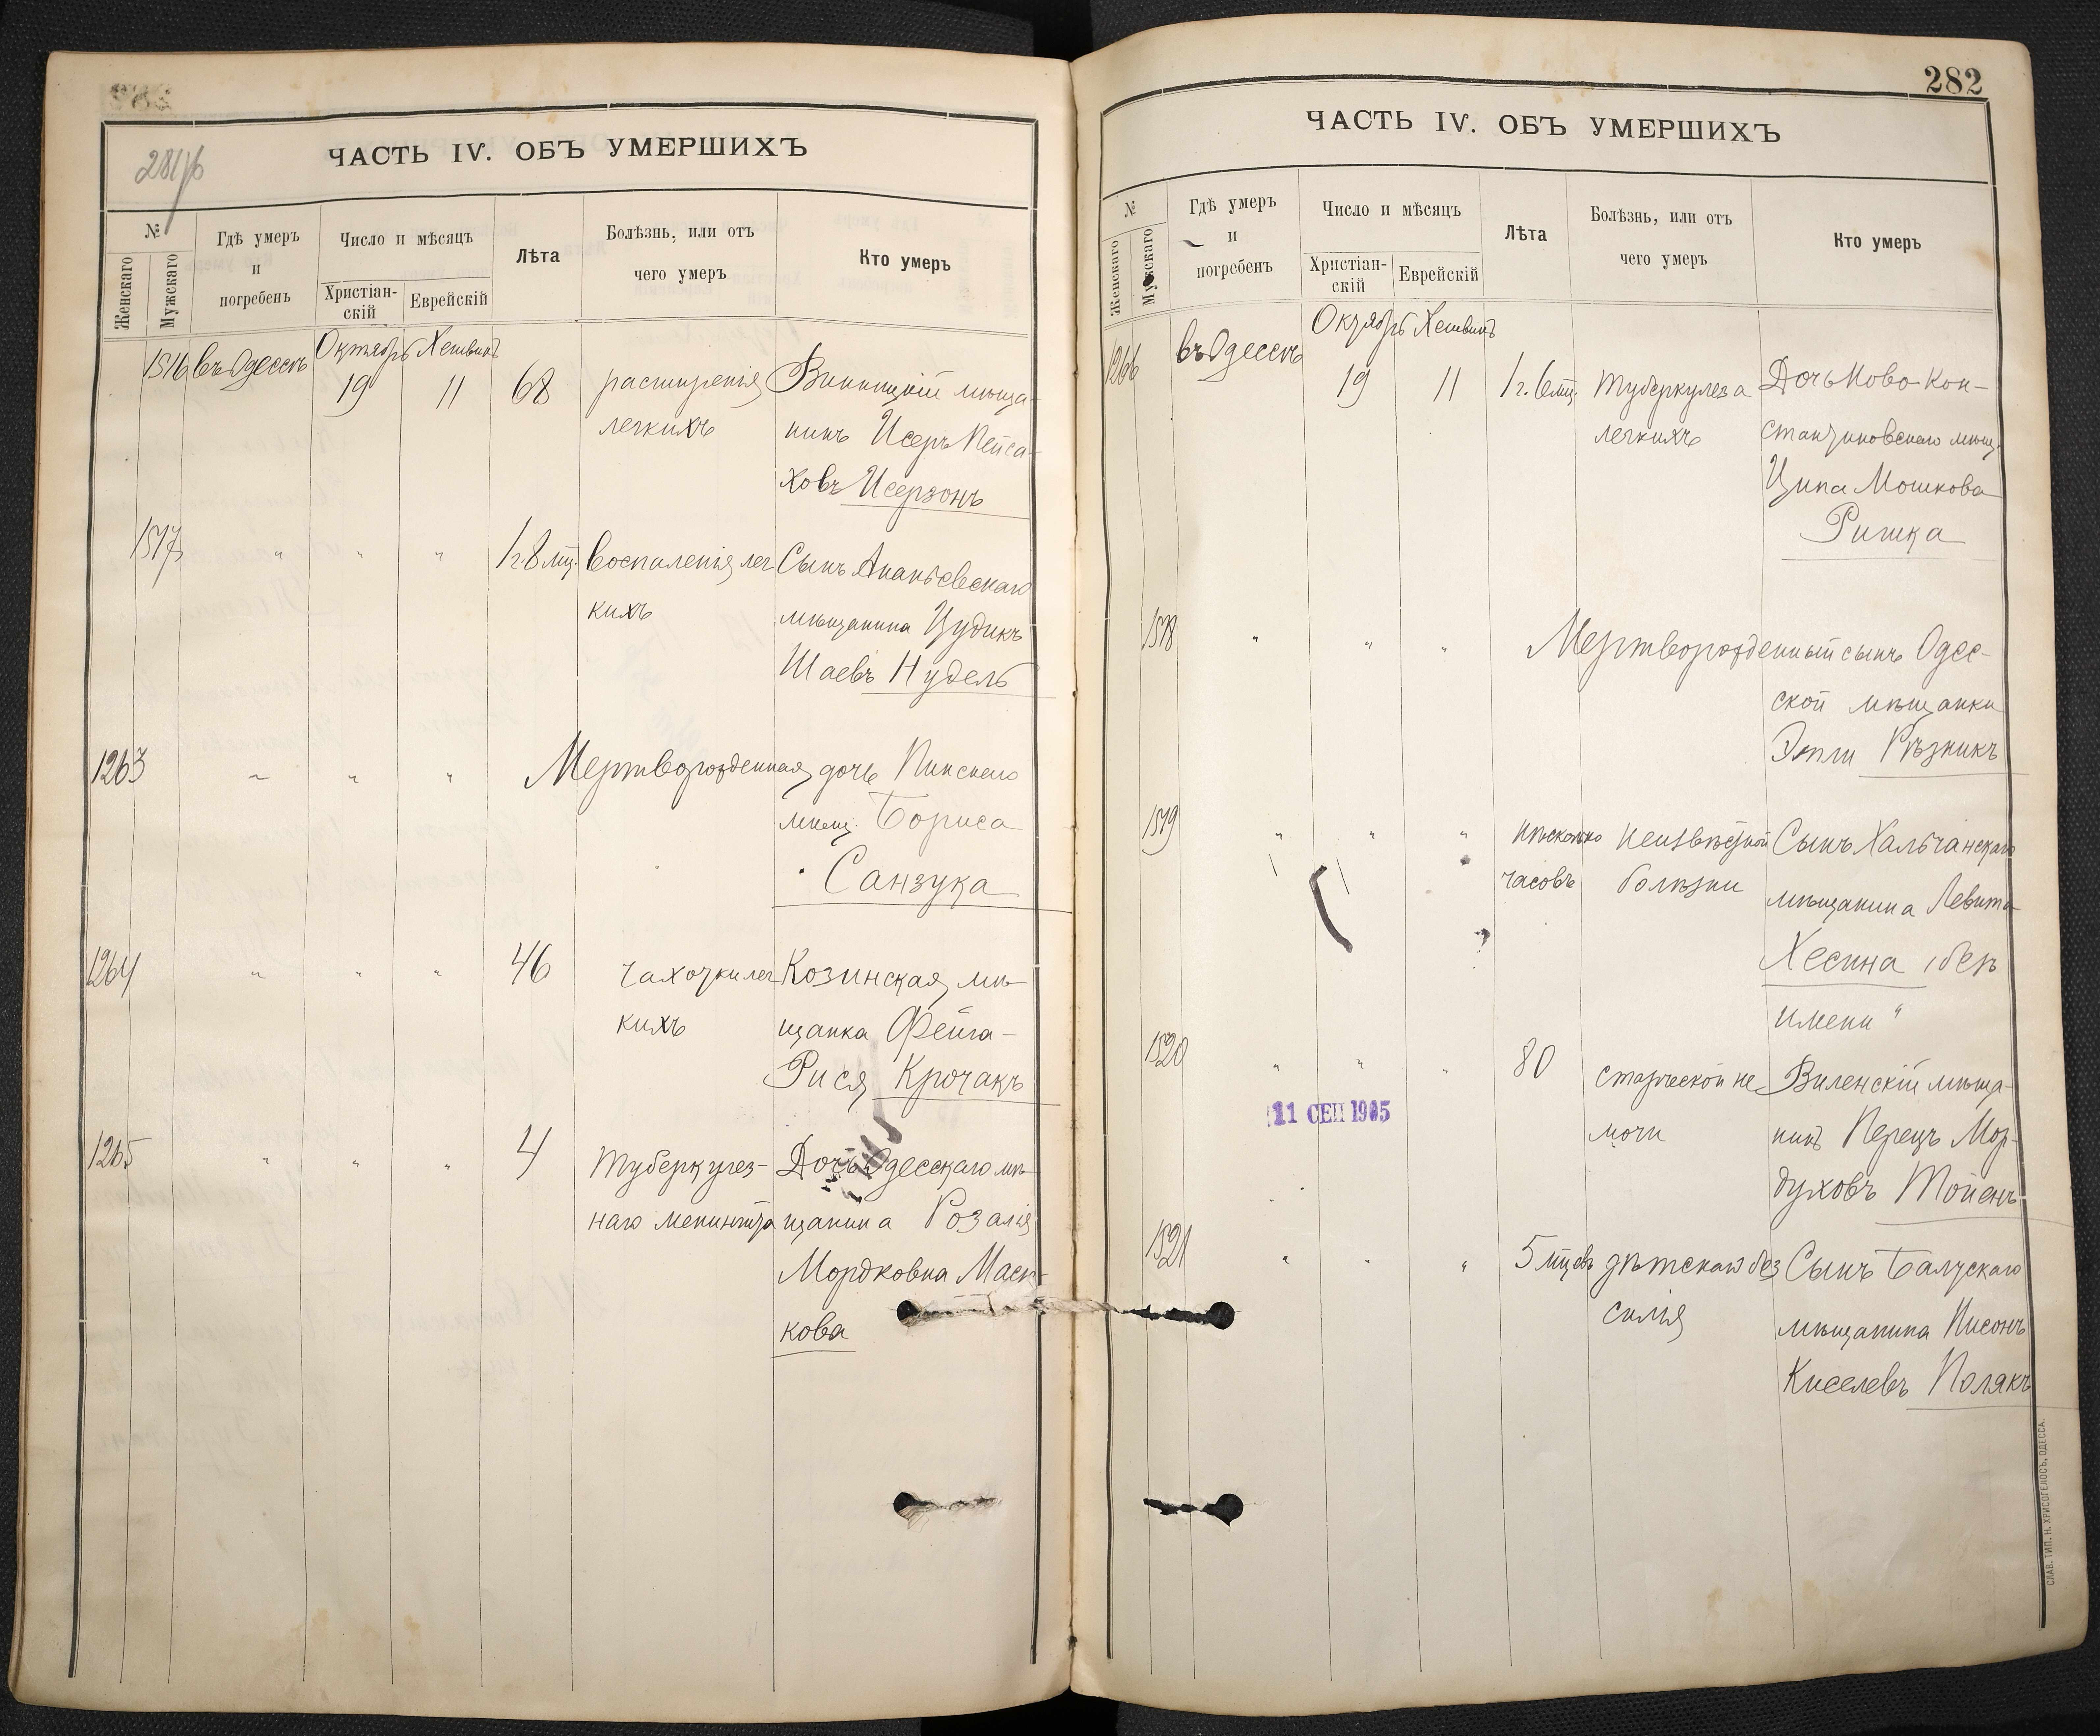 281/б
ЧАСТЬ IV. ОБЪ УМЕРШИХЪ
№
Женскаго
Мужскаго
Гдѣ умеръ
и
погребенъ
Число и мѣсяцъ
Христіан-
скій
Еврейскій
Лѣта
Болѣзнь, или отъ
чего умеръ
Кто умеръ
1516 въ Одессѣ Октябрь Хешвинъ
19 11 68 расширенія Винницкій мѣща-
легкихъ нинъ Исеръ Пейса-
ховъ Исерзонъ
1517 " " " 1 г. 8 мц. воспаленія лег Сынъ Ананьевскаго
кихъ мѣщанина Цудикъ
Шаевъ Нудель
1263 " " " Мертворожденная дочь Пинскаго
мѣщ. Бориса
Санзука
1264 " " " 46 чахотки лег Козинская мѣ-
кихъ щанка Фейга-
Рися Крочакъ
1265 " " " 4 туберкулез- Дочь Одесскаго мѣ-
наго менингита щанина Розалія
Мордковна Маень-
кова
282
ЧАСТЬ IV. ОБЪ УМЕРШИХЪ
№
Женскаго
Мужскаго
Гдѣ умеръ
и
погребенъ
Число и мѣсяцъ
Христіан-
скій
Еврейскій
Лѣта
Болѣзнь, или отъ
чего умеръ
Кто умеръ
1266 въ Одессѣ Октябрь Хешвинъ
19 11 1 г. 6 мц. туберкулеза Дочь Ново-Кон-
легкихъ стантиновскаго мѣщ.
Ципа Мошкова
Ришка
1518 " " " Мертворожденный сынъ Одес-
ской мѣщанки
Этли Рѣзникъ
1519 " " " нѣсколько неизвѣстной Сынъ Хальчанскаго
часовъ болѣзни мѣщанина Левита
Хесина "безъ
имени"
1520 " " " 80 старческой не Виленскій мѣща-
мочи нинъ Перецъ Мор-
духовъ Тойенъ
11 СЕП 1905
1521 " " " 5 мцевъ дѣтскаго без Сынъ Балтскаго
силія мѣщанина Нисонъ
Киселевъ Полякъ
СЛАВ. ТИП. Н. ХРИСОГЕЛОСЪ, ОДЕССА.